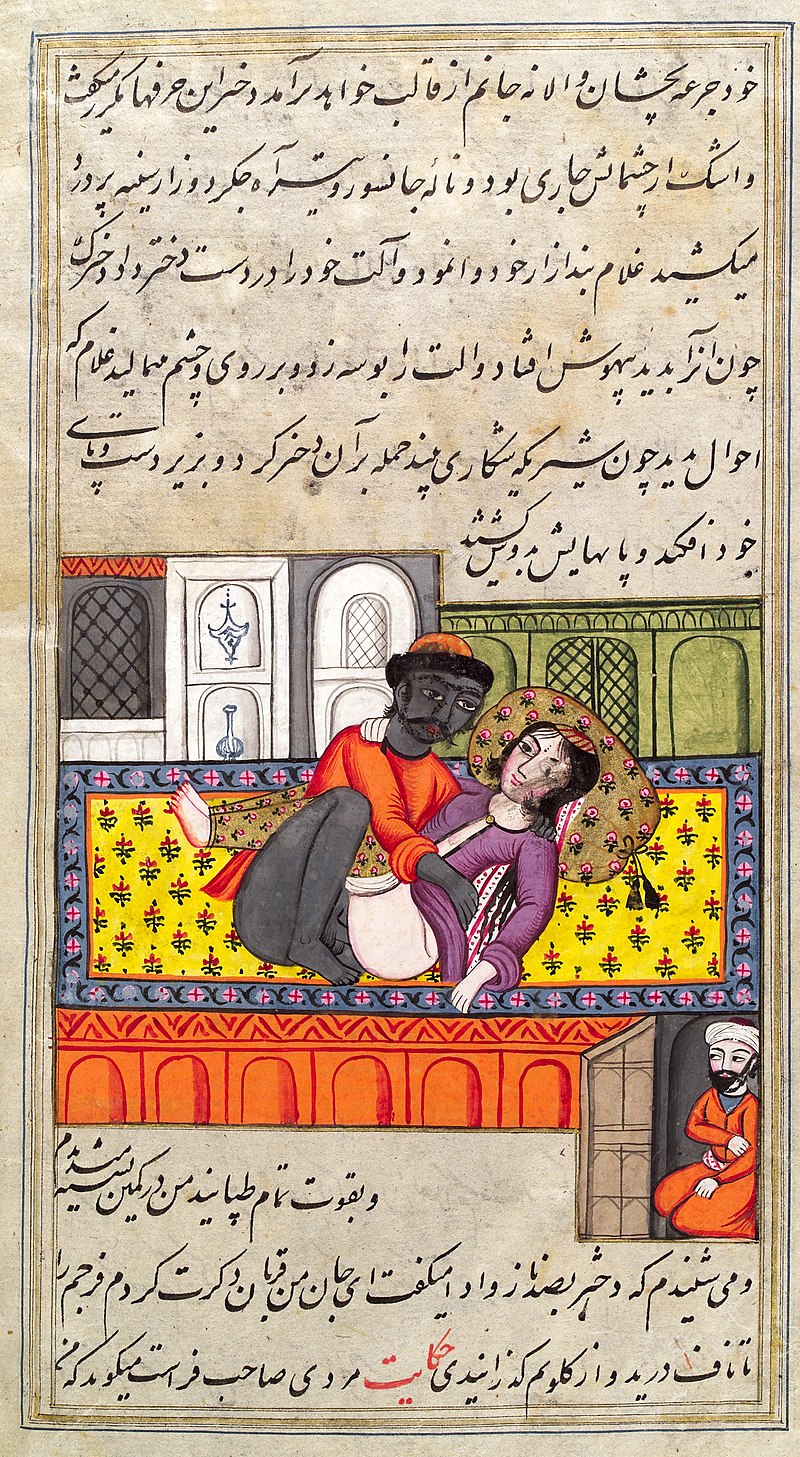 خود جرعه بچشان والا نه جانم از قالب خواهد برآمد دختر این حرفها میگفت
و اشک از چشمانش جاری بود و ناله جانسوز و آه جگردوز از سینه پر درد
میکشید غلام بند ازار خود وا نمود و آلت خود را در دست دختر داد دخترک
چون آنرا بدید بیهوش افتاد و آلت را بوسه زد و بر روی و چشم میمالید غلام که
احوال بدید چون شیر یکه شکاری چند حمله بر آن دختر کرد و بزیر دست و پای
خود افکند و پا بهایش بدوش کشید
و بقوت تمام طپانید من در کمین نشسته میدیدم
و می شنیدم که دختر بصد ناز و ادا میگفت ای جان من قربان ذکرت کردم فرجم را
تا ناف درید و از گلویم گذرانیدی حکایت مردی صاحب فراست میگوید که